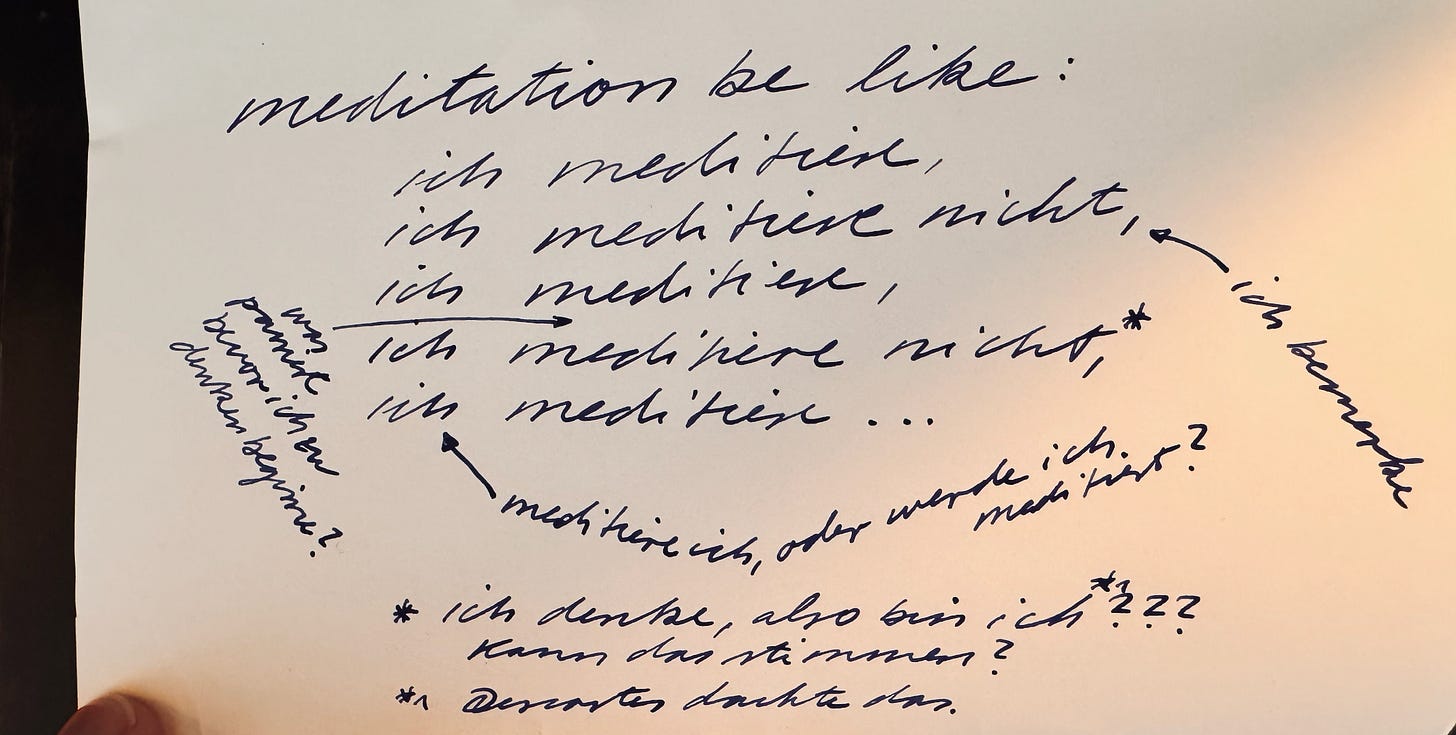 meditation be like:
ich meditiere,
ich meditiere nicht,
ich meditiere,
ich meditiere nicht,*
ich meditiere ...
ich bemerke
was
passiert
bevor ich zu
denken beginne?
meditiere ich, oder werde ich
meditiert?
* ich denke, also bin ich*1???
Kann das stimmen?
*1 Descartes dachte das.